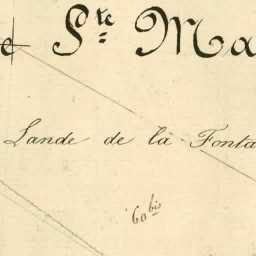 e Ste Ma
Lande de la Fonta
60 bis